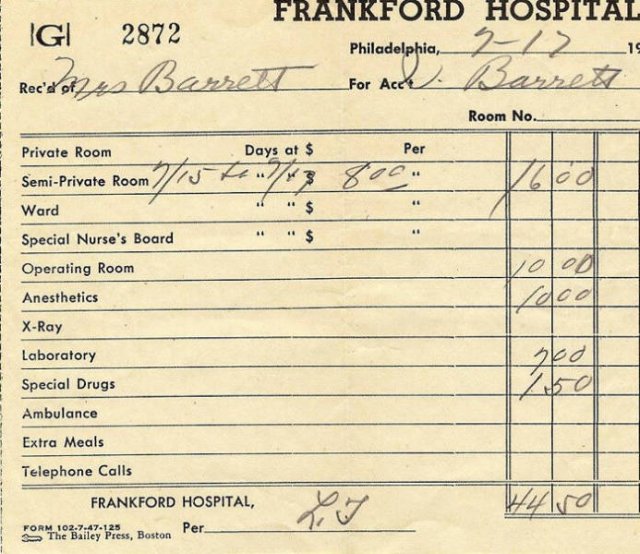 FRANKFORD HOSPITAL
|G| 2872
Philadelphia, 7-17 19
Rec'd of Mrs Barrett For Acc't W. Barrett
Room No.
Private Room Days at $ Per
Semi-Private Room 7/15 to 7/17 " " $ 8 00 " 16 00
Ward " " $ "
Special Nurse's Board " " $ "
Operating Room 10 00
Anesthetics 10 00
X-Ray
Laboratory 7 00
Special Drugs 1 50
Ambulance
Extra Meals
Telephone Calls
FRANKFORD HOSPITAL, 44 50
Per L.T
FORM 102-7-47-125
The Bailey Press, Boston